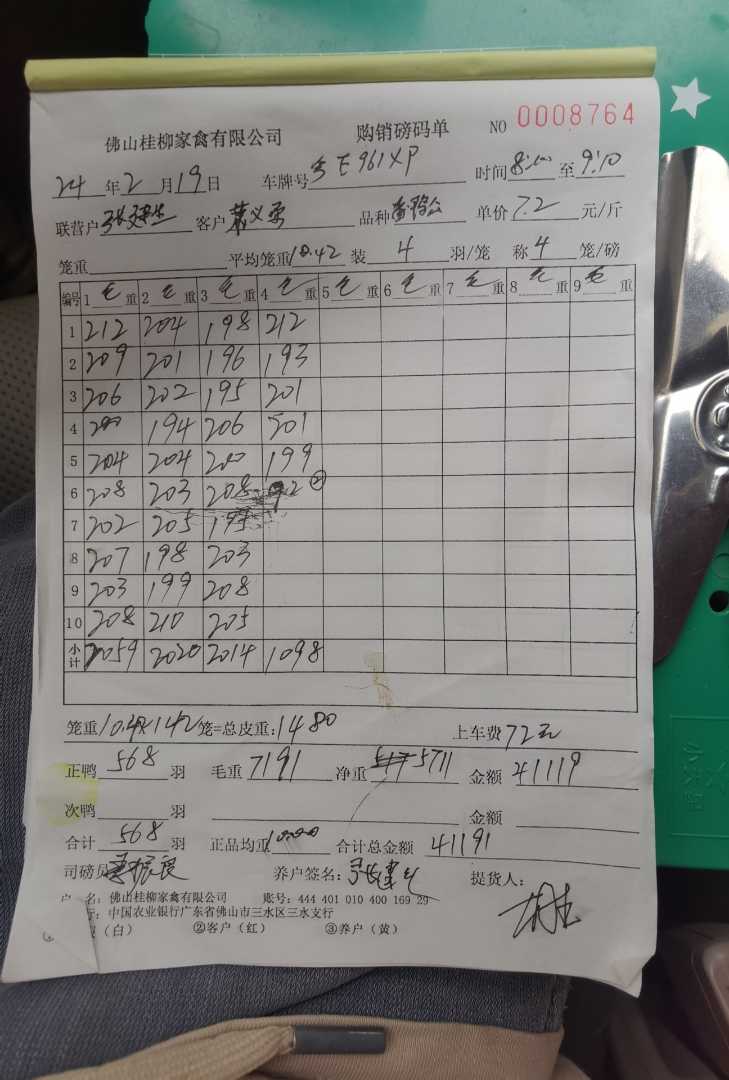 佛山桂柳家禽有限公司 购销磅码单 NO 0008764
24 年 2 月 19 日 车牌号 E961XP 时间 8:00 至 9:10
联营户 客户 品种 单价 7.2 元/斤
笼重 平均笼重 10.42 装 4 羽/笼 称 4 笼/磅
编号 1 毛 重 2 毛 重 3 毛 重 4 毛 重 5 毛 重 6 毛 重 7 毛 重 8 毛 重 9 毛 重
1 212 204 198 212
2 209 201 196 193
3 206 202 195 201
4 200 194 206 201
5 204 204 200 199
6 208 203 208 92 ②
7 202 205 195
8 207 198 203
9 203 199 208
10 208 210 205
小计 2059 2020 2014 1098
笼重 10.42×142 笼=总皮重: 1480 上车费 72元
正鸭 568 羽 毛重 7191 净重 5711 金额 41119
次鸭 羽 金额
合计 568 羽 正品均重 合计总金额 41191
司磅员 养户签名: 提货人:
名: 佛山桂柳家禽有限公司 账号: 444 401 010 400 169 29
行: 中国农业银行广东省佛山市三水区三水支行
(白) ②客户(红) ③养户(黄)